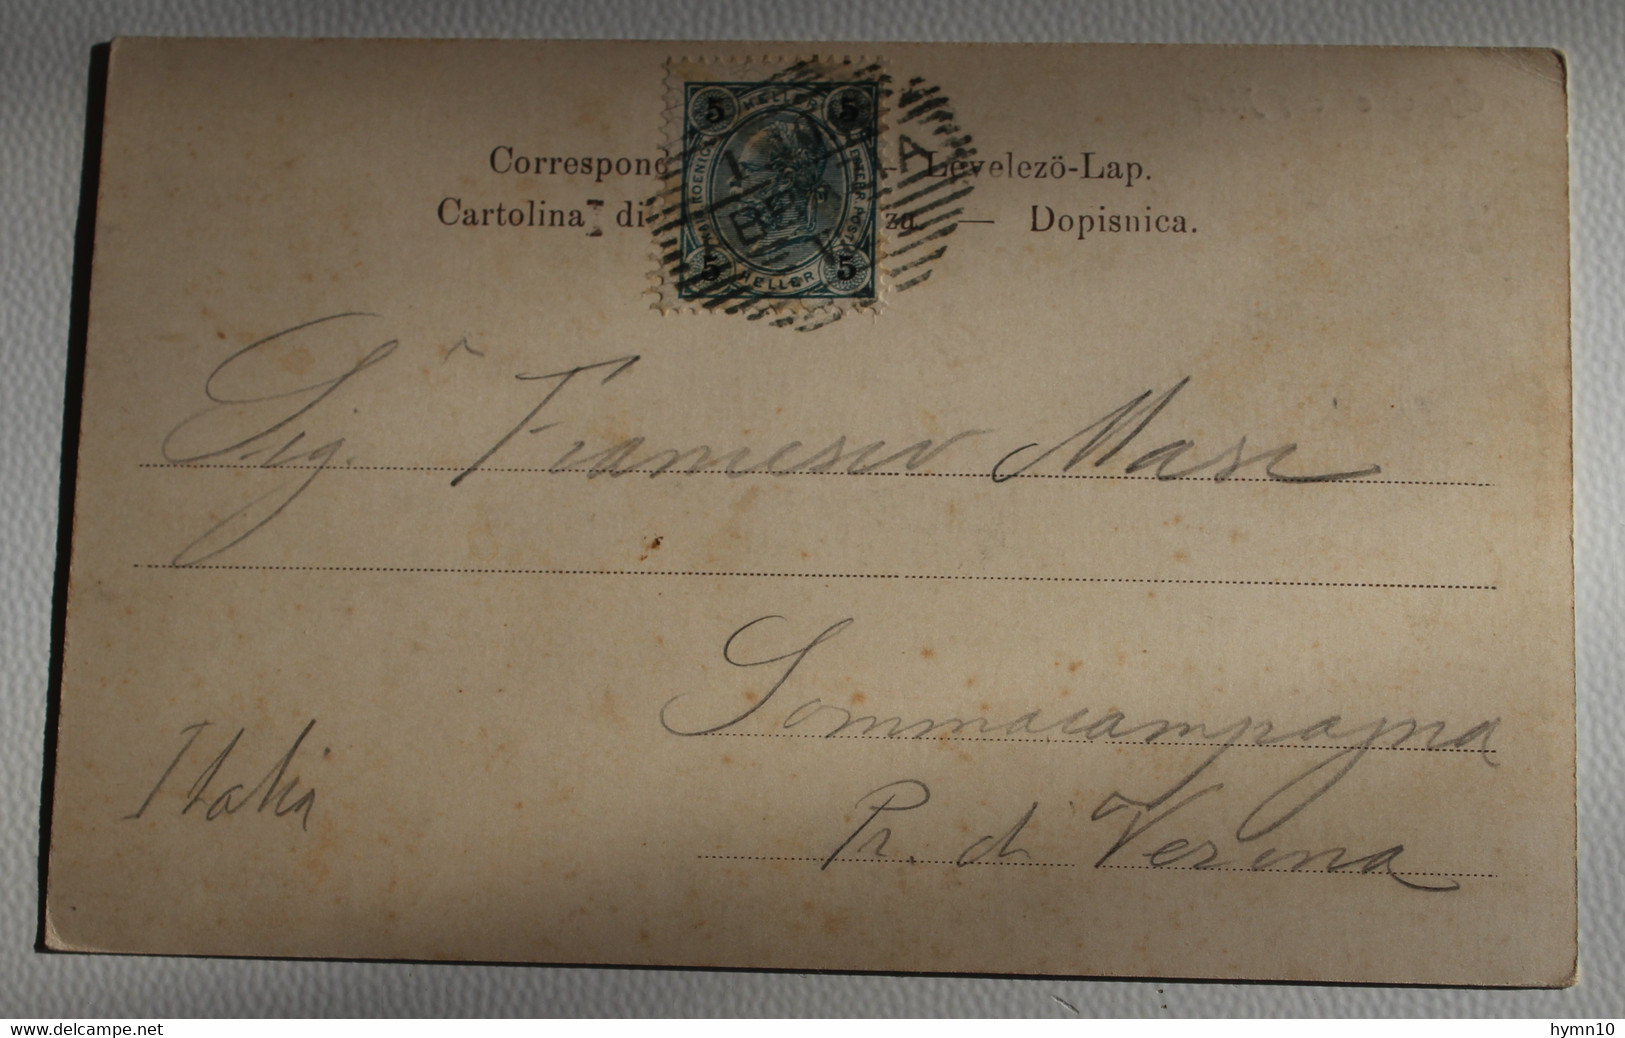 5 HELLER 5
5 HELLER 5
Correspon — Levelezö-Lap.
Cartolina di za. — Dopisnica.
Sig. Francesco Masi
Sommacampagna
Italia
Pr. di Verona
www.delcampe.net
hymn10